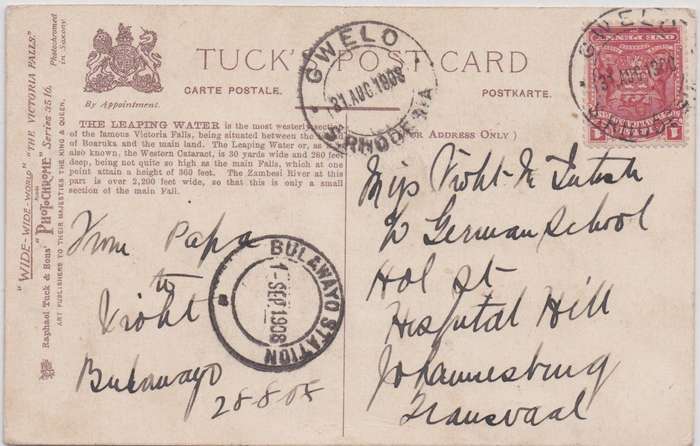 TUCK'S POST CARD
CARTE POSTALE.
POSTKARTE.
By Appointment.
"WIDE-WIDE-WORLD" "THE VICTORIA FALLS."
Raphael Tuck & Sons' "PHOTOCHROME" Series 3516.
Photochromed in Saxony.
ART PUBLISHERS TO THEIR MAJESTIES THE KING & QUEEN.
THE LEAPING WATER is the most westerly section
of the famous Victoria Falls, being situated between the
of Boaruka and the main land. The Leaping Water or, as
also known, the Western Cataract, is 30 yards wide and 260 feet
deep, being not quite so high as the Main Falls, which at one
point attain a height of 360 feet. The Zambesi River at this
part is over 2,200 feet wide, so that this is only a small
section of the main Fall.
OR ADDRESS ONLY )
GWELO
31 AUG 1908
RHODESIA
GWELO
31 AUG 190
ONE PENNY
BULAWAYO STATION
1-SEP 1908
From Papa
to
Bulawayo
28-8-08
Miss
German School
Hol St
Hospital Hill
Johannesburg
Transvaal